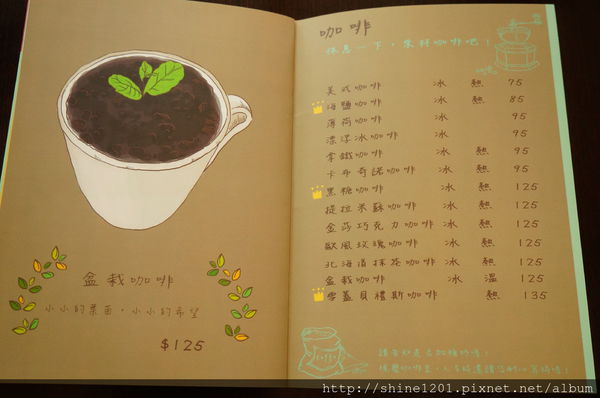 盆栽咖啡
小小的葉面，小小的希望
$125
咖啡
休息一下，來杯咖啡吧！
美式咖啡 冰 熱 75
海鹽咖啡 冰 熱 85
薄荷咖啡 冰 95
漂浮冰咖啡 冰 95
拿鐵咖啡 冰 熱 95
卡布奇諾咖啡 冰 熱 95
黑糖咖啡 冰 熱 125
提拉米蘇咖啡 冰 熱 125
金莎巧克力咖啡 冰 熱 125
歐風玫瑰咖啡 冰 熱 125
北海道抹茶咖啡 冰 熱 125
盆栽咖啡 冰 溫 125
雪蓋貝禮斯咖啡 熱 135
http://shine1201.pixnet.net/album